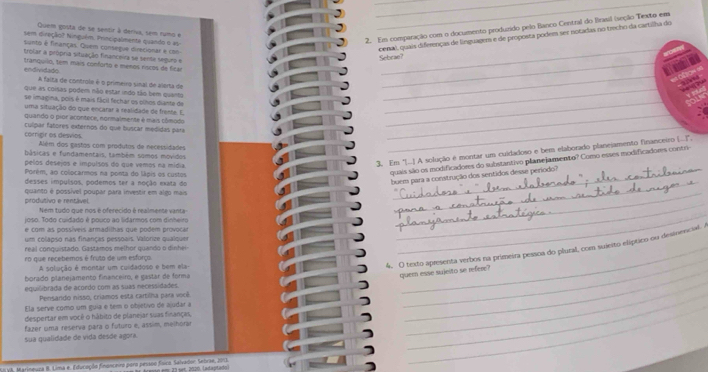 Quem gosta de se sentir à deriva, sem rumo e
sem direção? Ninguém. Principalmente quando o as-
sunto é finanças. Quem consegue direcionar e con-
trolar a própria situação financeira se sente seguro e
tranquilo, tem mais conforto e menos riscos de ficar
endividado.
A falta de controle é o primeiro sinal de alerta de
que as coisas podem não estar indo tão bem quanto
se imagina, pois é mais fácil fechar os olhos diante de
uma situação do que encarar a realidade de frente. E,
quando o pior acontece, normalmente é mais cômodo
culpar fatores externos do que buscar medidas para
corrigir os desvios.
Além dos gastos com produtos de necessidades
básicas e fundamentais, também somos movidos
pelos desejos e impulsos do que vemos na mídia.
Porém, ao colocarmos na ponta do lápis os custos
desses impulsos, podemos ter a noção exata do
quanto é possível poupar para investir em algo mais
produtivo e rentável.
Nem tudo que nos é oferecido é realmente vanta-
joso. Todo cuidado é pouco ao lidarmos com dinheiro
e com as possíveis armadilhas que podem provocar
um colapso nas finanças pessoais. Valorize qualquer
real conquistado. Gastamos melhor quando o dinhei-
ro que recebemos é fruto de um esforço.
A solução é montar um cuidadoso e bem ela-
borado planejamento financeiro, e gastar de forma
equilibrada de acordo com as suas necessidades.
Pensando nisso, criamos esta cartilha para você.
Ela serve como um guia e tem o objetivo de ajudar a
despertar em você o hábito de planejar suas finanças,
fazer uma reserva para o futuro e, assim, melhorar
sua qualidade de vida desde agora.
Marineuza B. Lima e. Educação financeira para pessoa física. Salvador: Sebrae, 2013.
set. 2020. (adaptado)
2. Em comparação com o documento produzido pelo Banco Central do Brasil (seção Texto em
cena), quais diferenças de linguagem e de proposta podem ser notadas no trecho da cartilha do
Sebrae?
3. Em "[...] A solução é montar um cuidadoso e bem elaborado planejamento financeiro [...]",
quais são os modificadores do substantivo planejamento? Como esses modificadores contri-
buem para a construção dos sentidos desse período?
"Cuidadoso" e "bem elaborado"; eles contribuiram
para a construção de um sentido de rigor e
planejamento estratégico.
4. O texto apresenta verbos na primeira pessoa do plural, com sujeito elíptico ou desinencial. A
quem esse sujeito se refere?